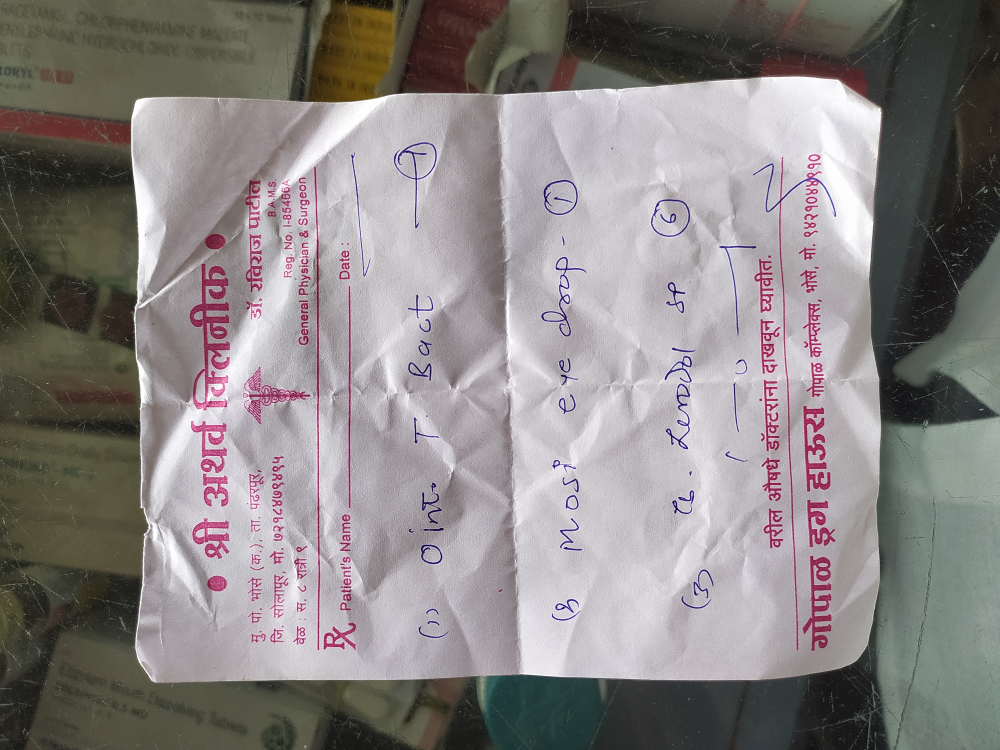 • श्री अथर्व क्लिनीक •
मु. पो. भोसे (क.), ता. पंढरपूर,
जि. सोलापूर, मो. ७२१८४७९४९५
वेळ : स. ८ रात्री ९
डॉ. रविराज पाटील
B.A.M.S.
Reg. No. I-85466A
General Physician & Surgeon
Rx Patient's Name Date :
(1) Oint. T. Bact — 1
(2 Mosi eye drop - 1
(3) SP 6
वरील औषधे डॉक्टरांना दाखवून घ्यावीत.
गोपाळ ड्रग हाऊस गोपाळ कॉम्प्लेक्स, भोसे, मो. ९४२१०४४९१०